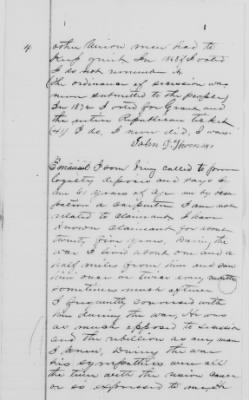 4
other Union men had to
keep quiet. In 1868 I voted
I do not remember it
the ordinance of secession was
never submitted to the people
In 1872 I voted for Grant and
the entire Republican ticket
44 I do. I never did. I was.
John J. Thomas
called to prove
loyalty deposes and says I
am 61 years of age am by occu
pation a carpenter I am not
related to claimant. I have
known claimant for some
twenty five years. During the
war I lived about one and a
half miles from him and saw
him once or twice a
sometimes much oftener
I frequently conversed with
him during the war. He was
as much opposed to secession
and the rebellion as any man
I knew. During the war
his sympathies were all
the time with the union cause
or so expressed to me. He